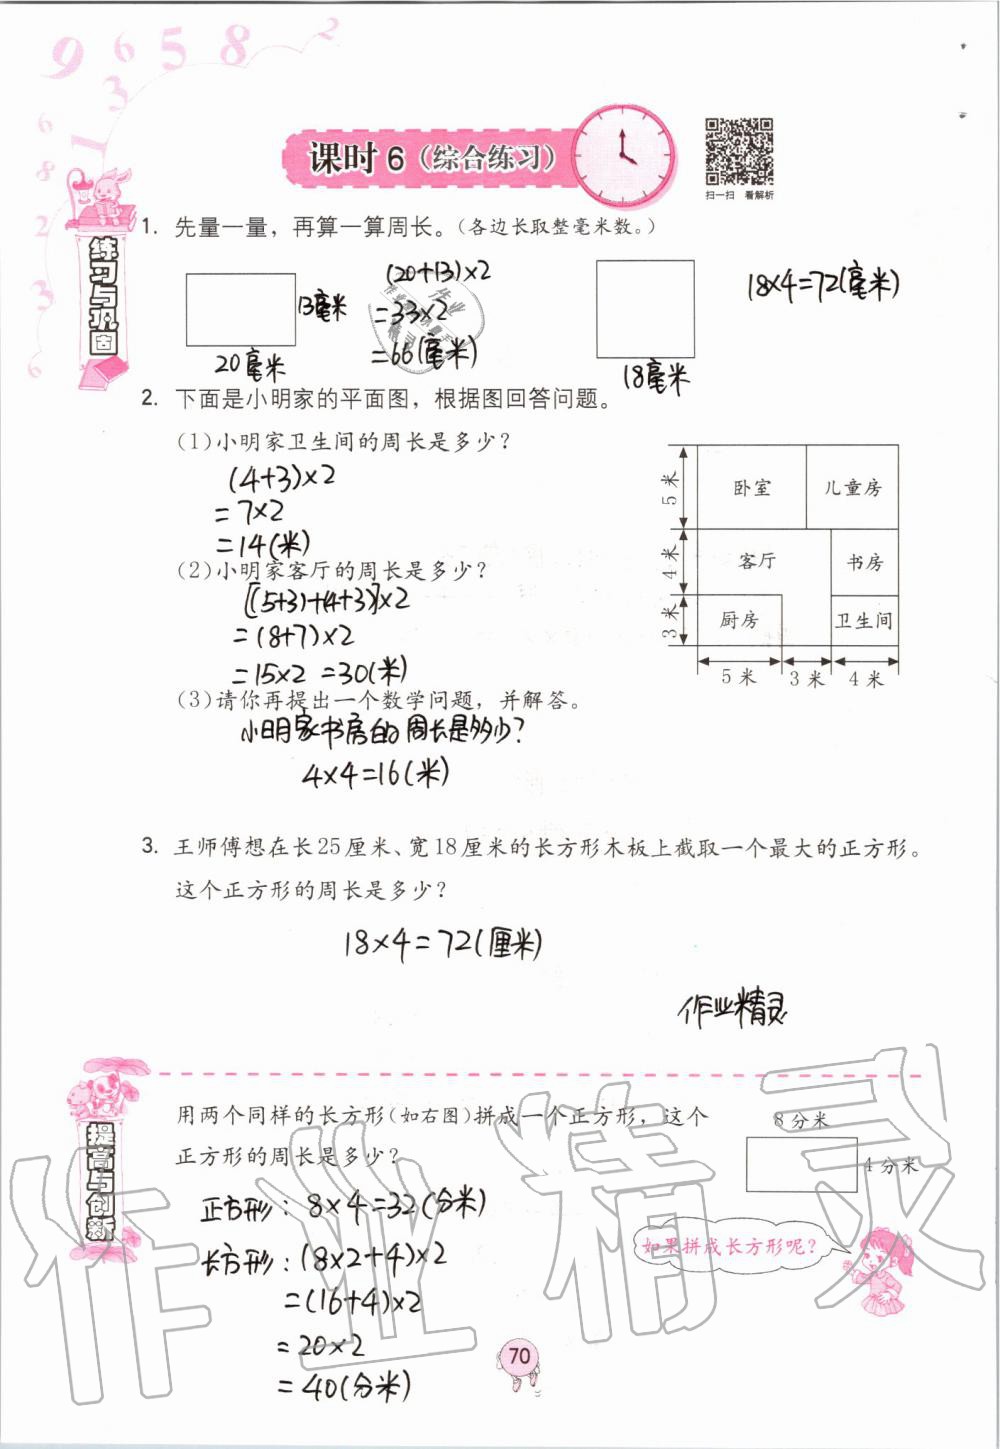 9 6 5 8 2
3
1
6
8
2
3
6
课时6(综合练习)
扫一扫 看解析
练习与巩固
1. 先量一量，再算一算周长。(各边长取整毫米数。)
13毫米
20毫米
(20+13)×2
=33×2
=66(毫米)
18毫米
18×4=72(毫米)
2. 下面是小明家的平面图，根据图回答问题。
(1)小明家卫生间的周长是多少?
(4+3)×2
=7×2
=14(米)
(2)小明家客厅的周长是多少?
[(5+3)+(4+3)]×2
=(8+7)×2
=15×2 =30(米)
(3)请你再提出一个数学问题，并解答。
小明家书房的周长是多少?
4×4=16(米)
5米
4米
3米
卧室 儿童房
客厅 书房
厨房 卫生间
5米 3米 4米
3. 王师傅想在长25厘米、宽18厘米的长方形木板上截取一个最大的正方形。
这个正方形的周长是多少?
18×4=72(厘米)
作业精灵
提高与创新
用两个同样的长方形(如右图)拼成一个正方形，这个
正方形的周长是多少?
8分米
4分米
正方形: 8×4=32(分米)
长方形: (8×2+4)×2
=(16+4)×2
=20×2
=40(分米)
如果拼成长方形呢?
70
作业精灵